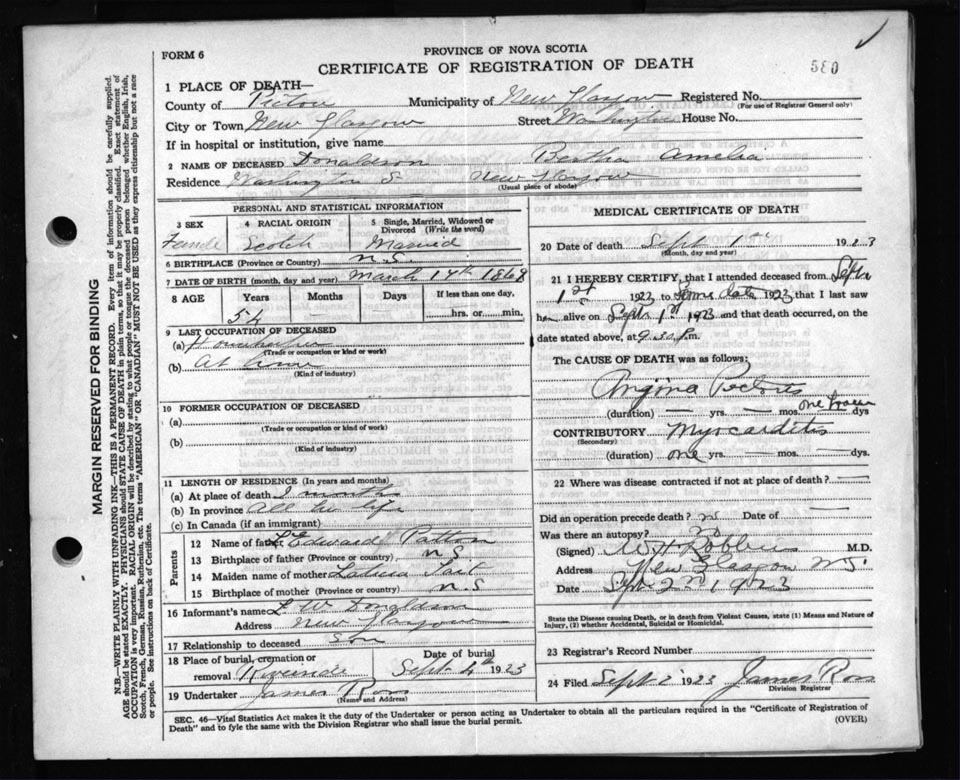 FORM 6
PROVINCE OF NOVA SCOTIA
CERTIFICATE OF REGISTRATION OF DEATH
580
1 PLACE OF DEATH—
County of Pictou Municipality of New Glasgow Registered No.
(For use of Registrar General only)
City or Town New Glasgow Street Washington House No.
If in hospital or institution, give name
2 NAME OF DECEASED Donaldson Bertha Amelia
Residence Washington S New Glasgow
(Usual place of abode)
PERSONAL AND STATISTICAL INFORMATION
3 SEX 4 RACIAL ORIGIN 5 Single, Married, Widowed or Divorced (Write the word)
Female Scotch Married
6 BIRTHPLACE (Province or Country) N.S.
7 DATE OF BIRTH (month, day and year) March 17th 1868
8 AGE Years Months Days If less than one day,
54 — — hrs. or min.
9 LAST OCCUPATION OF DECEASED
(a) Housekeeper
(Trade or occupation or kind or work)
(b) At home
(Kind of industry)
10 FORMER OCCUPATION OF DECEASED
(a)
(Trade or occupation or kind of work)
(b)
(Kind of industry)
11 LENGTH OF RESIDENCE (In years and months)
(a) At place of death months
(b) In province All her life
(c) In Canada (if an immigrant)
Parents
12 Name of father Edward Patton
13 Birthplace of father (Province or country) N S
14 Maiden name of mother Tait
15 Birthplace of mother (Province or country) N.S
16 Informant's name L W Donaldson
Address New Glasgow
17 Relationship to deceased Son
18 Place of burial, cremation or removal Riverside Date of burial Sept 4th 1923
19 Undertaker James Ross
(Name and Address)
MEDICAL CERTIFICATE OF DEATH
20 Date of death Sept 1st 1923
(Month, day and year)
21 I HEREBY CERTIFY, that I attended deceased from Sept
1st 1923 to same date 1923 that I last saw
her alive on Sept 1st 1923 and that death occurred, on
date stated above, at 9.30 p.m.
The CAUSE OF DEATH was as follows:
Angina Pectoris
(duration) — yrs. — mos. one hour dys
CONTRIBUTORY Myocarditis
(Secondary)
(duration) one yrs. — mos. — dys.
22 Where was disease contracted if not at place of death? —
Did an operation precede death? no Date of —
Was there an autopsy? no
(Signed) W H Robbins M.D.
Address New Glasgow NS.
Date Sept 2nd 1923
State the Disease causing Death, or in death from Violent Causes, state (1) Means and Nature of
Injury, (2) whether Accidental, Suicidal or Homicidal.
23 Registrar's Record Number
24 Filed Sept 2 1923 James Ross
Division Registrar
SEC. 46—Vital Statistics Act makes it the duty of the Undertaker or person acting as Undertaker to obtain all the particulars required in the "Certificate of Registration of
Death" and to fyle the same with the Division Registrar who shall issue the burial permit. (OVER)
MARGIN RESERVED FOR BINDING
N.B.—WRITE PLAINLY WITH UNFADING INK—THIS IS A PERMANENT RECORD. Every item of information should be carefully supplied.
AGE should be stated EXACTLY. PHYSICIANS should STATE CAUSE OF DEATH in plain terms, so that it may be properly classified. Exact statement of
OCCUPATION is very important. RACIAL ORIGIN will be described by stating to what people or tongue the deceased person belonged whether English, Irish,
Scotch, French, German, Russian, Ruthenian, etc. The terms "AMERICAN" OR "CANADIAN" MUST NOT BE USED as they express citizenship but not a race
or people. See instructions on back of Certificate.